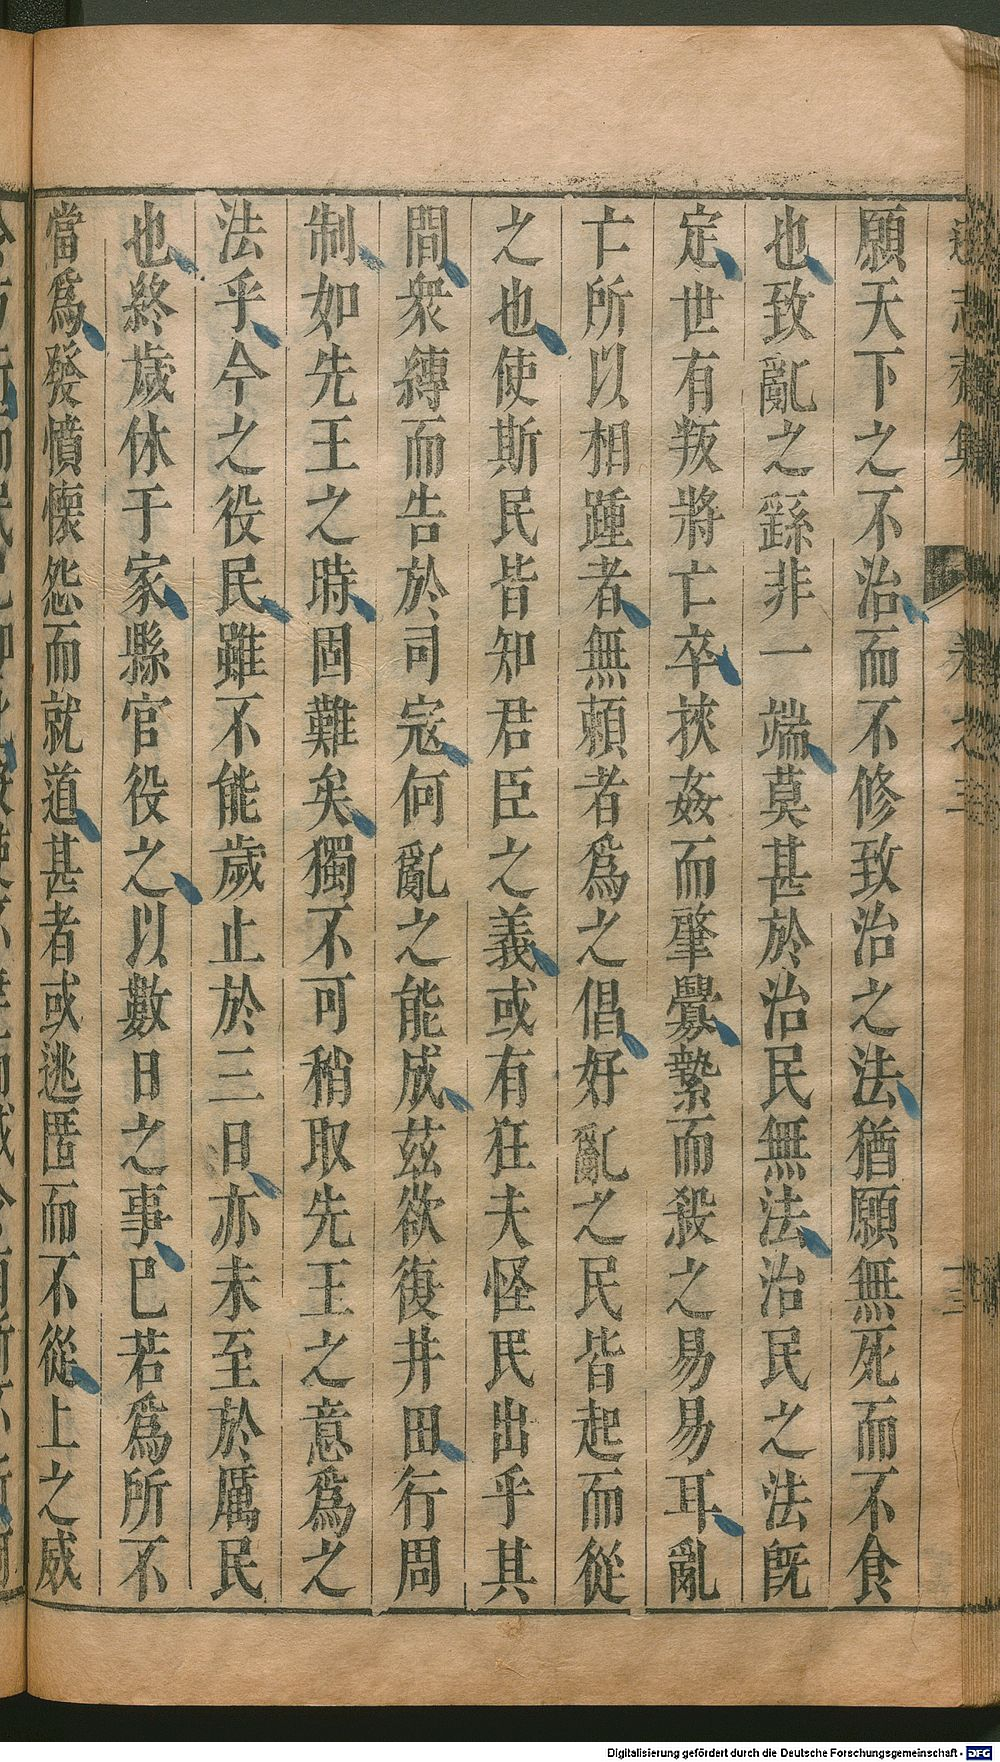 願天下之不治而不修致治之法猶願無死而不食
也致亂之繇非一端莫甚於治民無法治民之法旣
定世有叛將亡卒挾姦而肇釁縶而殺之易易耳亂
亡所以相踵者無頼者爲之倡好亂之民皆起而從
之也使斯民皆知君臣之義或有狂夫怪民出乎其
間衆縳而告於司寇何亂之能成茲欲復井田行周
制如先王之時固難矣獨不可稍取先王之意爲之
法乎今之役民雖不能歲止於三日亦未至於厲民
也終歲休于家縣官役之以數日之事巳若爲所不
當爲發憤懷怨而就道甚者或逃匿而不從上之威
Digitalisierung gefördert durch die Deutsche Forschungsgemeinschaft - DFG